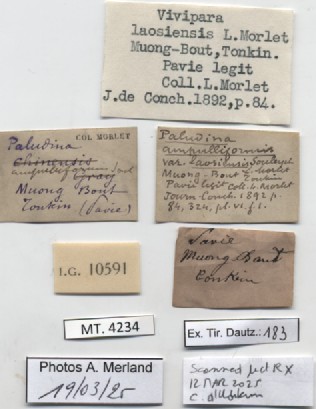 Vivipara
laosiensis L.Morlet
Muong-Bout,Tonkin.
Pavie legit
Coll.L.Morlet
J.de Conch.1892,p.84.
COL MORLET
Paludina
chinensis
Muong Bout
Tonkin (Pavie)
Paludina
ampulliformis
var. laosiensis
Muong-Bout L. Morlet
Pavie legit Coll. L. Morlet
Journ. Conch. 1892 p.
84, 324, pl. vi, f. 1.
I.G. 10591
Pavie
Muong Bout
Tonkin
MT. 4234
Ex. Tir. Dautz.: 183
Photos A. Merland
19/03/25
Scanned µCT RX
12 MAR 2025